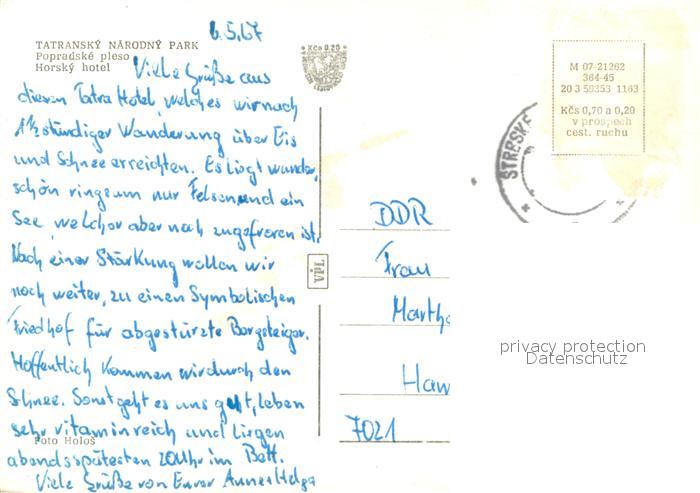 6.5.67
TATRANSKÝ NÁRODNÝ PARK
Popradské pleso
Horský hotel
Kčs 0.20
Viele Grüße aus
diesen Tatra Hotel, welches wir nach
1½ stündiger Wanderung über Eis
und Schnee erreichten. Es liegt wunder,
schön ringsum nur Felsen und ein
See, welcher aber noch zugefroren ist.
Nach einer Stärkung wollen wir
noch weiter, zu einen Symbolischen
Friedhof für abgestürzte Bergsteiger.
Hoffentlich kommen wir durch den
Schnee. Sonst geht es uns gut, leben
sehr vitaminreich und liegen
Foto Hološ
abends spätesten 20 Uhr im Bett.
Viele Grüße von Eurer Anne Helga
VPL
M 07-21262
364-45
20 3 59353 1163
Kčs 0,70 a 0,20
v prospech
cest. ruchu
ŠTRBSKÉ
DDR
Frau
Martha
Haw
7021
privacy protection
Datenschutz